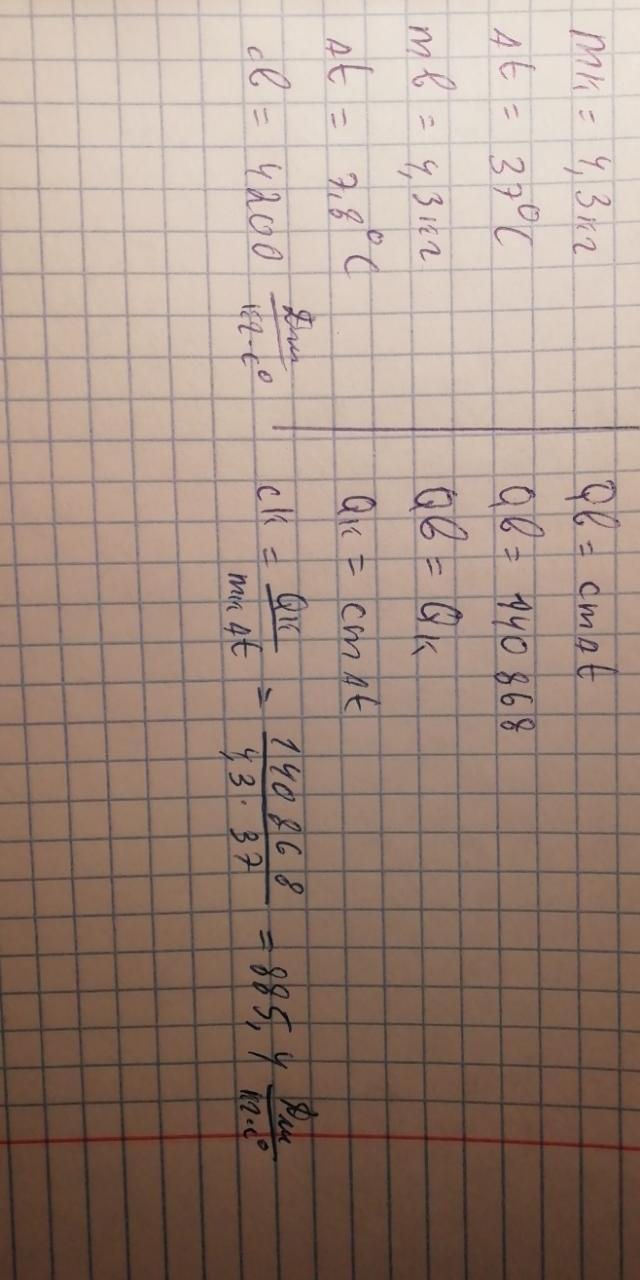 mк = 4,3 кг
Δt = 37°C
mв = 4,3 кг
Δt = 7,8°C
cв = 4200 Дж/кг·c°
Qв = cmΔt
Qв = 140 868
Qв = Qк
Qк = cmΔt
cк = Qк/mкΔt = 140 868/4,3·37 = 885,4 Дж/кг·c°